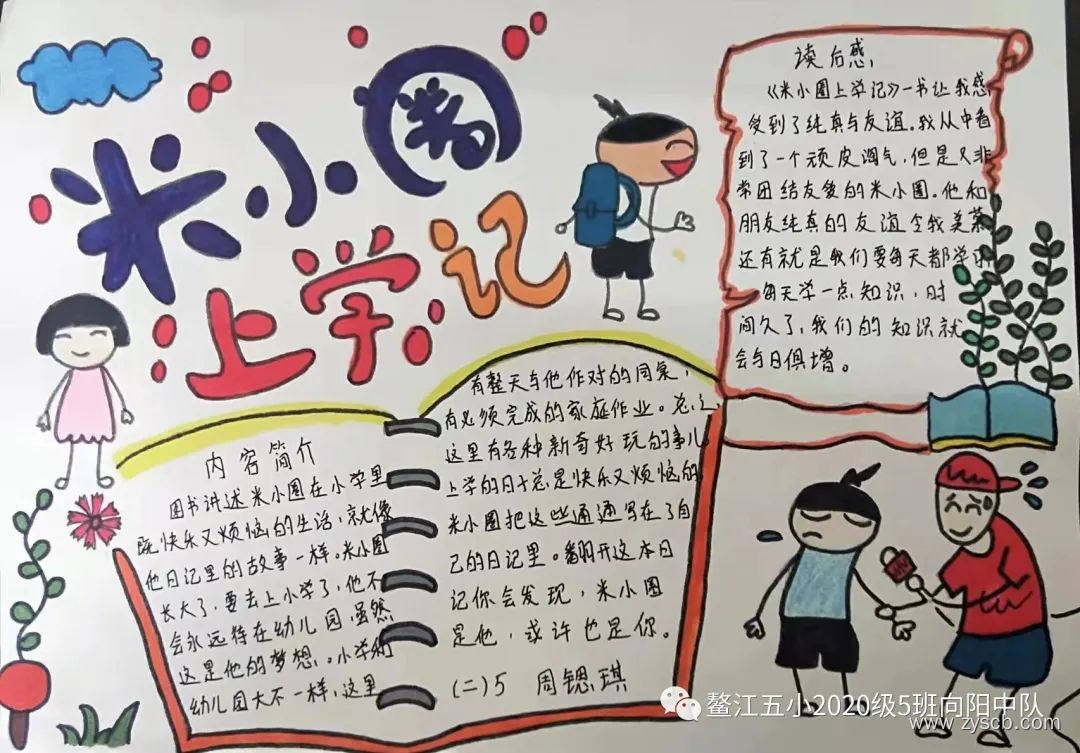 米小圈
上学记
读后感
《米小圈上学记》一书让我感
受到了纯真与友谊。我从中看
到了一个顽皮淘气,但是又非
常团结友爱的米小圈。他和
朋友纯真的友谊令我羡慕
还有就是我们要每天都学习
每天学一点知识,时
间久了,我们的知识就
会与日俱增。
内容简介
图书讲述米小圈在小学里
既快乐又烦恼的生活,就像
他日记里的故事一样。米小圈
长大了,要去上小学了,他不
会永远待在幼儿园,虽然
这是他的梦想。小学和
幼儿园大不一样,这里
有整天与他作对的同桌,
有必须完成的家庭作业。总之,
这里有各种新奇好玩的事儿
上学的日子总是快乐又烦恼的
米小圈把这些通通写在了自
己的日记里。翻开这本日
记你会发现,米小圈
是他,或许也是你。
(二)5 周锶琪
鳌江五小2020级5班向阳中队
www.zyscb.com